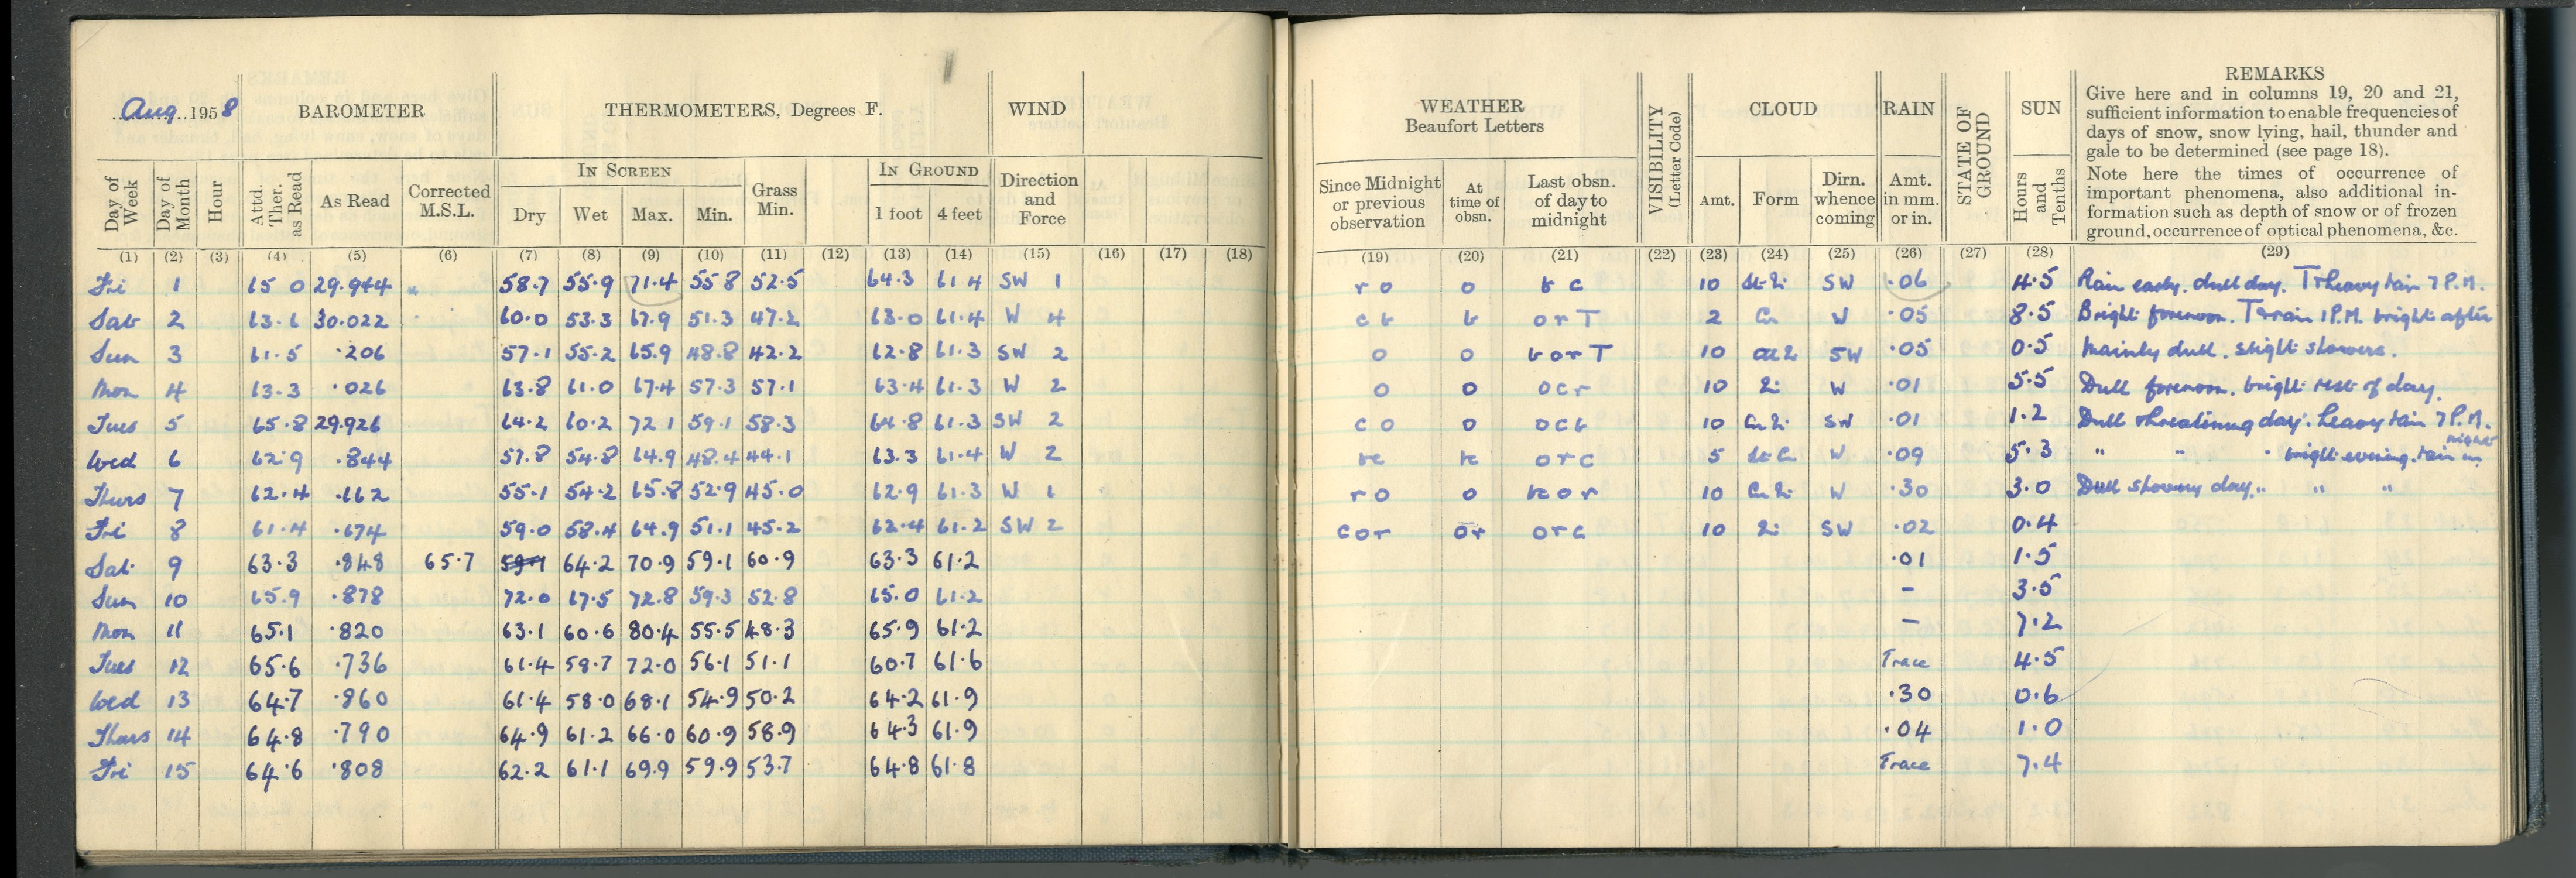 Aug 1958 BAROMETER THERMOMETERS, Degrees F. WIND
Day of Week Day of Month Hour Attd. Ther. as Read As Read Corrected M.S.L. IN SCREEN Dry Wet Max. Min. Grass Min. IN GROUND 1 foot 4 feet Direction and Force
(1) (2) (3) (4) (5) (6) (7) (8) (9) (10) (11) (12) (13) (14) (15) (16) (17) (18)
Fri 1 65 0 29.944 58.7 55.9 71.4 55.8 52.5 64.3 61.4 SW 1
Sat 2 63.6 30.022 60.0 53.3 67.9 51.3 47.2 63.0 61.4 W 4
Sun 3 61.5 .206 57.1 55.2 65.9 48.8 42.2 62.8 61.3 SW 2
Mon 4 63.3 .026 63.8 61.0 67.4 57.3 57.1 63.4 61.3 W 2
Tues 5 65.8 29.926 64.2 60.2 72.1 59.1 58.3 64.8 61.3 SW 2
Wed 6 62.9 .844 57.8 54.8 64.9 48.4 44.1 63.3 61.4 W 2
Thurs 7 62.4 .662 55.1 54.2 65.8 52.9 45.0 62.9 61.3 W 1
Fri 8 61.4 .674 59.0 58.4 64.9 51.1 45.2 62.4 61.2 SW 2
Sat 9 63.3 .848 65.7 59.1 64.2 70.9 59.1 60.9 63.3 61.2
Sun 10 65.9 .878 72.0 67.5 72.8 59.3 52.8 65.0 61.2
Mon 11 65.1 .820 63.1 60.6 80.4 55.5 48.3 65.9 61.2
Tues 12 65.6 .736 61.4 59.7 72.0 56.1 51.1 60.7 61.6
Wed 13 64.7 .860 61.4 58.0 68.1 54.9 50.2 64.2 61.9
Thurs 14 64.8 .790 64.9 61.2 66.0 60.9 58.9 64.3 61.9
Fri 15 64.6 .808 62.2 61.1 69.9 59.9 53.7 64.8 61.8
WEATHER Beaufort Letters VISIBILITY (Letter Code) CLOUD RAIN STATE OF GROUND SUN REMARKS
Give here and in columns 19, 20 and 21,
sufficient information to enable frequencies of
days of snow, snow lying, hail, thunder and
gale to be determined (see page 18).
Note here the times of occurrence of
important phenomena, also additional in-
formation such as depth of snow or of frozen
ground, occurrence of optical phenomena, &c.
Since Midnight or previous observation At time of obsn. Last obsn. of day to midnight Amt. Form Dirn. whence coming Amt. in mm. or in. Hours and Tenths
(19) (20) (21) (22) (23) (24) (25) (26) (27) (28) (29)
r o o b c 10 SW .06 4.5 Rain early. dull day. T + heavy rain 7 P.M.
c b b o r T 2 Cu W .05 8.5 Bright forenoon. T + rain 1 P.M. bright after
o o b o r T 10 SW .05 0.5 Mainly dull. slight showers.
o o o c r 10 W .01 5.5 Dull forenoon. bright rest of day.
c o o o c b 10 SW .01 1.2 Dull threatening day. heavy rain 7 P.M.
bc bc o r c 5 St Cu W .09 5.3 " " " bright evening. rain in night
r o o bc o r 10 W .30 3.0 Dull showery day. " " "
c o r o r o r c 10 SW .02 0.4
.01 1.5
– 3.5
– 7.2
Trace 4.5
.30 0.6
.04 1.0
Trace 7.4